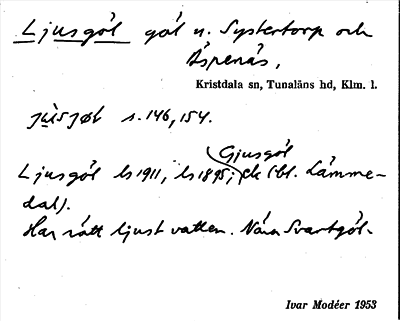 Ljusgöl göl n. Systertorp och
Äspenäs,
Kristdala sn, Tunaläns hd, Klm. l.
jʉ̀sjøt s. 146, 154.
Gjusgöl
Ljusgöl ls 1911, ls 1895; ek (bl. Lämme-
dal).
Har rätt ljust vatten. Nära Svartgöl.
Ivar Modéer 1953